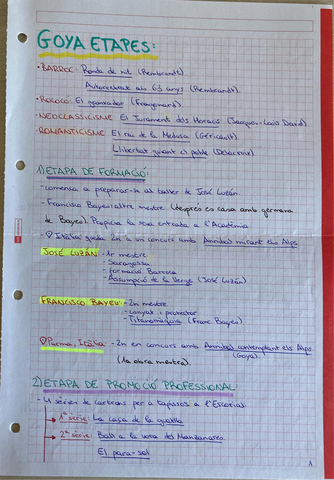 GOYA ETAPES:
• BARROC: Ronda de nit (Rembrandt)
Autorretrat als 63 anys (Rembrandt).
• ROCOCÓ: El gronxador (Fragonard)
• NEOCLASSICISME: El Jurament dels Horacis (Jacques-Louis David)
• ROMANTICISME: El rai de la Medusa (Géricault)
Llibertat guiant el poble (Delacroix)
1) ETAPA DE FORMACIÓ:
- comença a preparar-se al taller de José Luzán.
- Francisco Bayeu altre mestre (després es casa amb germana
de Bayeu). Propicia la seva entrada a l'Acadèmia
- Itàlia: queda 2n a un concurs amb Anníbal mirant els Alps
JOSÉ LUZÁN: - 1r mestre
- Saragossa
- formació Barroca
- Assumpció de la Verge (José Luzán)
FRANCISCO BAYEU: - 2n mestre
- cunyat i protector
- Titanomàquia (Franc. Bayeu)
Parma, Itàlia: - 2n en concurs amb Anníbal contemplant els Alps
(Goya)
(1a obra mestra).
2) ETAPA DE PROMOCIÓ PROFESSIONAL:
- 4 sèries de cartrons per a tapissos a l'Escorial.
1ª sèrie: La caça de la guatlla
2ª sèrie: Ball a la vora del Manzanares
El para-sol
A